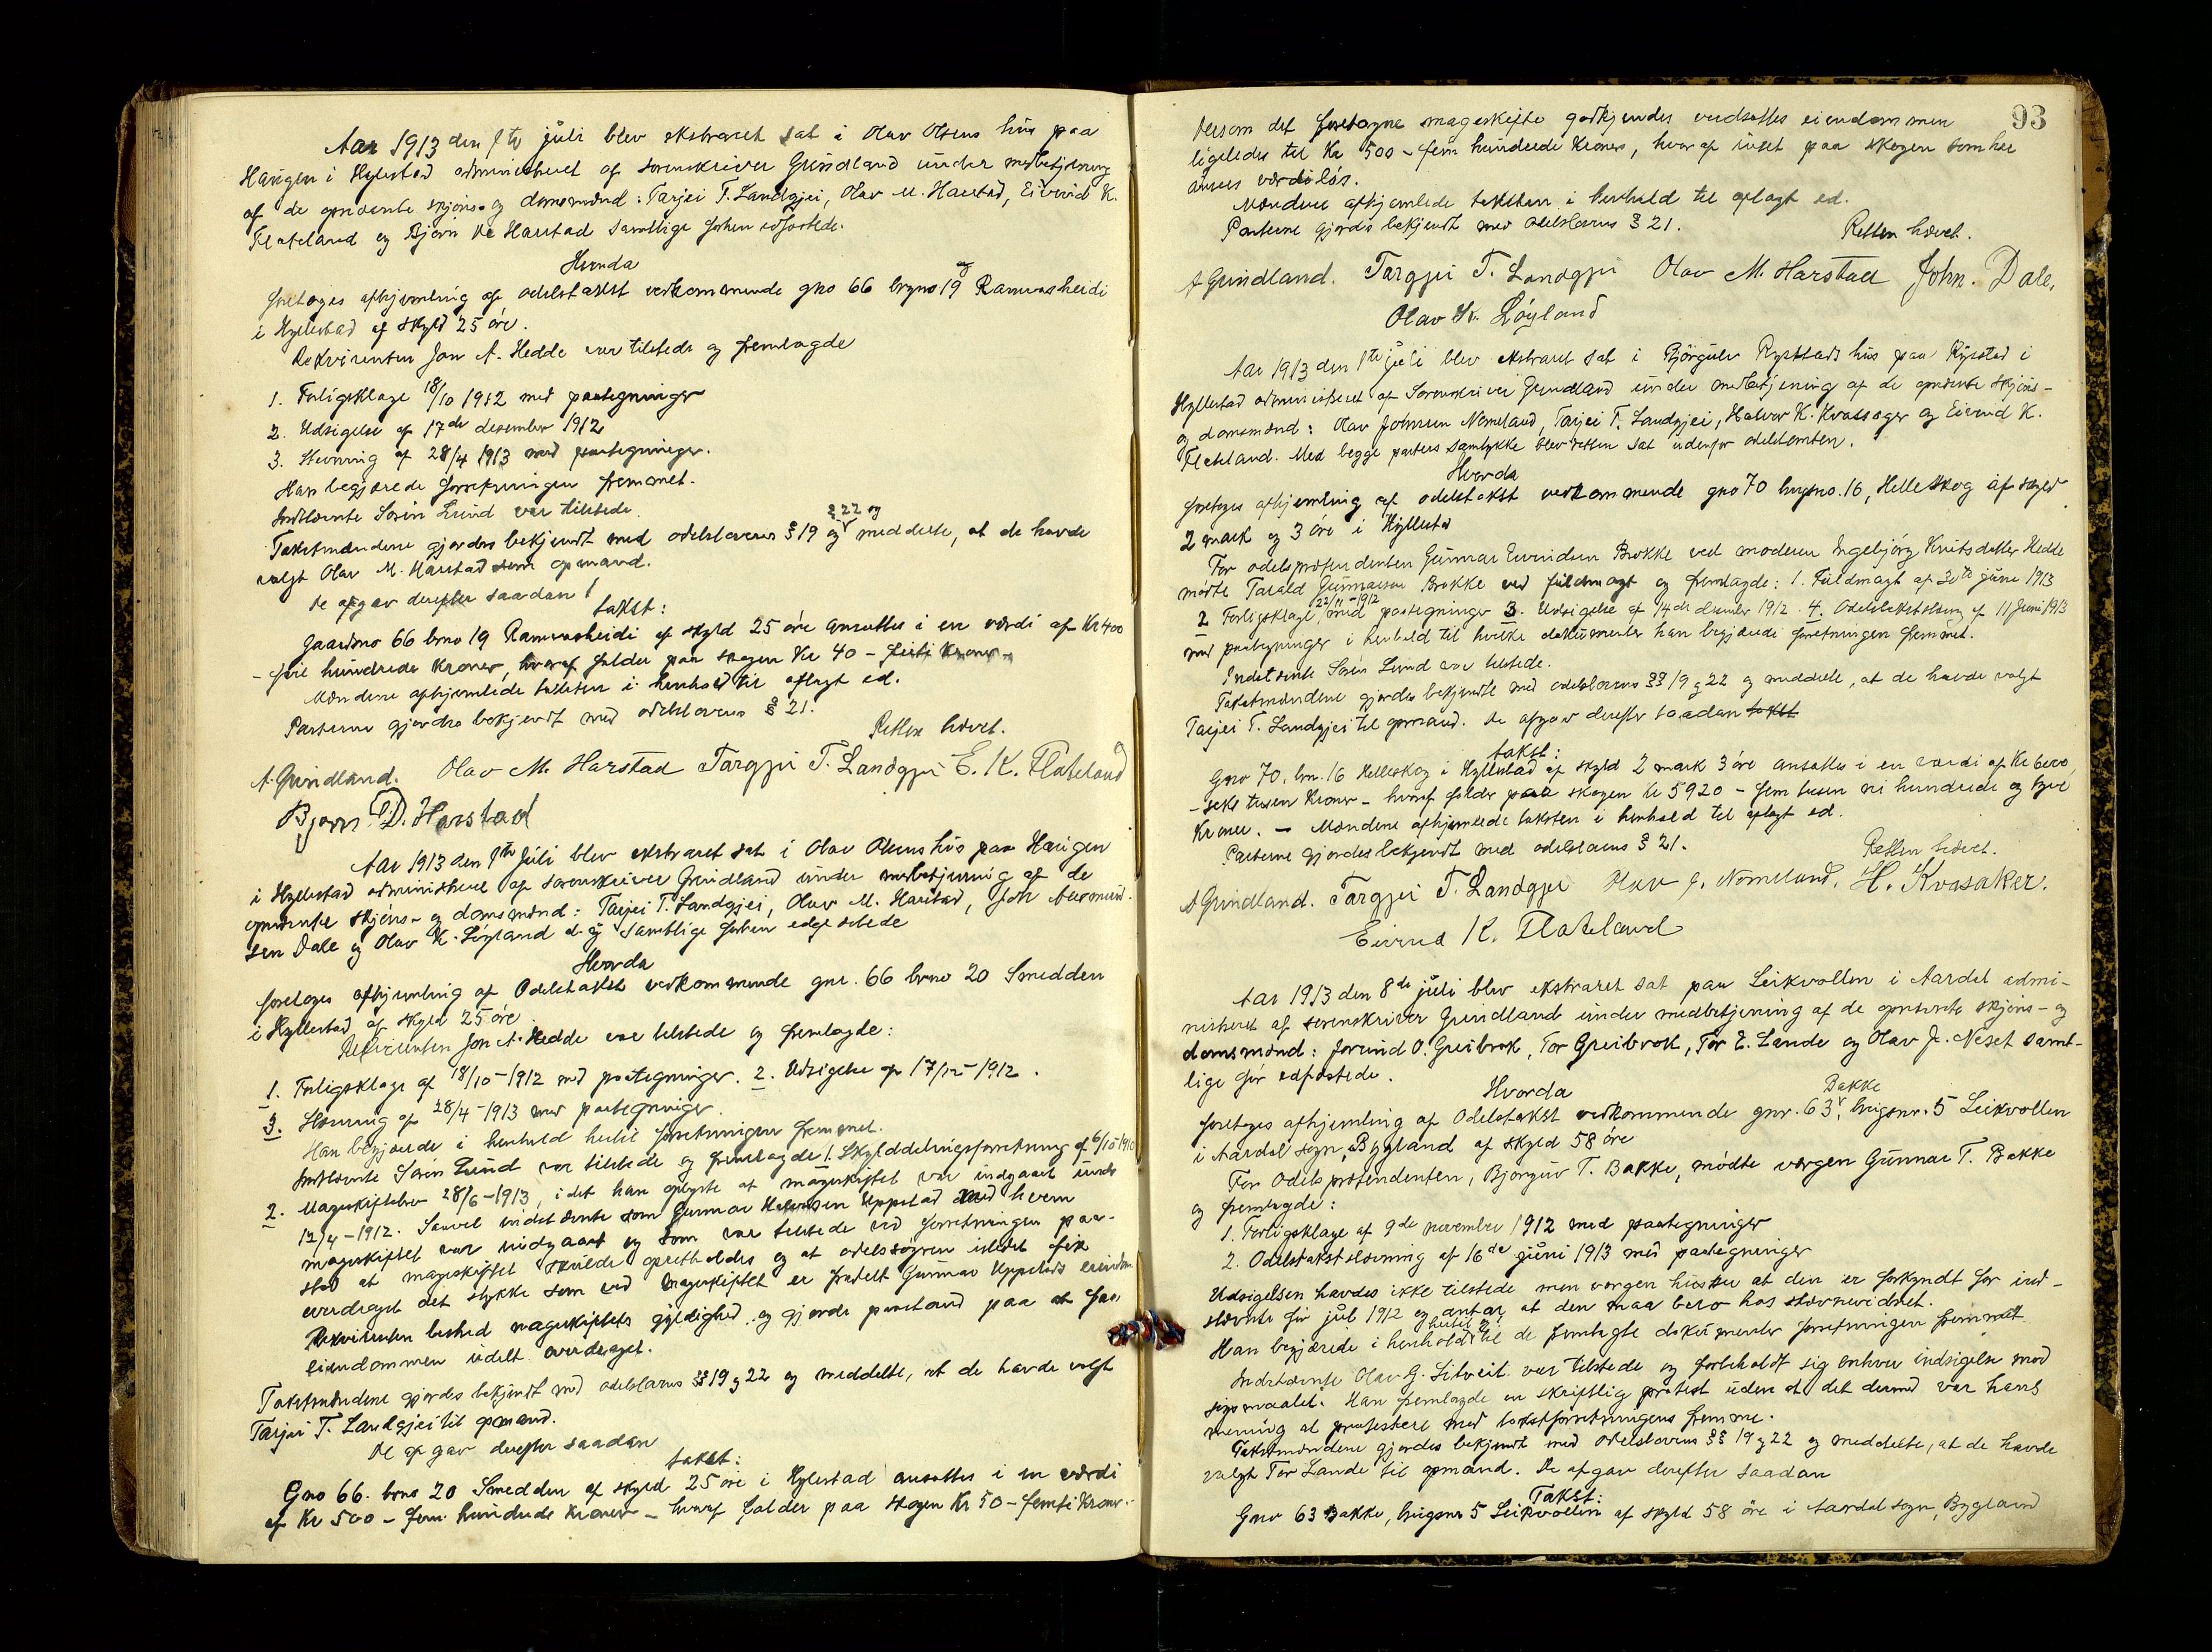 Aar 1913 den 1te juli blev ekstraret sat i Olav Olsens hus paa
Haugen i Hylestad administreret af sorenskriver Grundland under medbetjening
af de opnævnte skjøns- og domsmænd: Tarjei T. Landgjei, Olav M. Harstad, Eivind K.
Flateland og Bjørn Harstad samtlige forhen edfæstede.
Hvorda
foretoges afhjemling af odelstakst vedkommende gno 66 brugsno 19 Ramnsheidi
i Hyllestad af skyld 25 øre.
Rekvirenten Jon A. Hedde var tilstede og fremlagde
1. Forligsklage 18/10 1912 med paategninger
2. Udsigelse af 17de desember 1912
3. Stevning af 28/4 1913 med paategninger.
Han begjærede forretningen fremmet.
Indstevnte Søren Lund var tilstede.
Takstmændene gjordes bekjendt med odelslovens § 19 og § 22 og meddelte, at de havde
valgt Olav M. Harstad som opmand.
De afgav derefter saadan
takst:
Gaardsno 66 brno 19 Ramnsheidi af skyld 25 øre ansættes i en værdi af Kr 400
- fire hundrede kroner, hvoraf falder paa skogen Kr 40 - firti kroner -
Mændene afhjemlede taksten i henhold til aflagt ed.
Parterne gjordes bekjendt med odelslovens § 21.
Retten hævet.
A Grundland. Olav M. Harstad Targjei T. Landgjei E. K. Flateland
Bjørn D. Harstad
Aar 1913 den 1te Juli blev ekstraret sat i Olav Olsens hus paa Haugen
i Hyllestad administreret af sorenskriver Grundland under medbetjening af de
opnævnte skjøns- og domsmænd: Tarjei T. Landgjei, Olav M. Harstad, John Aasmund-
sen Dale og Olav K. Løyland d.y. samtlige forhen edfæstede
Hvorda
foretoges afhjemling af Odelstakst vedkommende gnr. 66 brno 20 Smedden
i Hyllestad af skyld 25 øre
Rekvirenten Jon A. Hedde var tilstede og fremlagde:
1. Forligsklage af 18/10-1912 med paategninger. 2. Udsigelse af 17/12-1912.
3. Stevning af 28/4-1913 med paategninger.
Han begjærede i henhold hertil forretningen fremmet.
Indstevnte Søren Lund var tilstede og fremlagde 1. Skylddelingsforretning af 6/10-1910
2. Mageskiftebrev 28/6-1913, idet han oplyste at mageskiftet var indgaaet under
12/4-1912. Saavel indstævnte som Gunnar Halvorsen Uppstad med hvem
mageskiftet var indgaaet og som var tilstede ved forretningen paa-
stod at mageskiftet skulde opretholdes og at odelssøgeren istedet fik
overdraget det stykke som ved mageskiftet er fradelt Gunnar Uppstads eiendom
Rekvirenten bestred mageskiftets gyldighed og gjorde paastand paa at faa
eiendommen udelt overdraget.
Takstmændene gjordes bekjendt med odelslovens §§ 19 og 22 og meddelte, at de havde valgt
Tarjei T. Landgjei til opmand.
De afgav derefter saadan
takst:
Gno 66. brno 20 Smedden af skyld 25 øre i Hylestad ansættes i en værdi
af Kr 500 - fem hundrede kroner - hvoraf falder paa skogen Kr 50 - femti kroner.
93
Dersom det foretagne mageskifte godkjendes værdsættes eiendommen
ligeledes til Kr 500 - fem hundrede kroner, hvoraf intet paa skogen som her
ansees værdiløs.
Mændene afhjemlede taksten i henhold til aflagt ed.
Parterne gjordes bekjendt med odelslovens § 21.
Retten hævet.
A Grundland. Targjei T. Landgjei Olav M. Harstad John. Dale.
Olav K. Løyland
Aar 1913 den 1te juli blev ekstraret sat i Bjørgulv Rysstads hus paa Rysstad i
Hyllestad administreret af Sorenskriver Grundland under medbetjening af de opnævnte skjøns-
og domsmænd: Olav Johnsen Nomeland, Tarjei T. Landgjei, Halvor K. Kvassager og Eivind K.
Flateland. Med begge parters samtykke blev retten sat udenfor odelstomten.
Hvorda
foretoges afhjemling af odelstakst vedkommende gno 70 brugsno. 16, Helleskog af skyld
2 mark og 3 øre i Hyllestad
For odelsprætendenten Gunnar Eivindsen Brokke ved moderen Ingebjørg Knutsdatter Hedde
mødte Tarald Gunnarson Brokke ved fuldmagt og fremlagde: 1. Fuldmagt af 30te juni 1913
2 Forligsklage 22/11-1912 med paategninger 3. Udsigelse af 14de desember 1912. 4. Odelstakststevning af 11 Juni 1913
med paategninger i henhold til hvilke dokumenter han begjærede forretningen fremmet.
Indstevnte Søren Lund var tilstede.
Takstmændene gjordes bekjendte med odelslovens §§ 19 og 22 og meddelte, at de havde valgt
Tarjei T. Landgjei til opmand. De afgav derefter saadan takst
takst:
Gno 70, brn. 16 Helleskog i Hyllestad af skyld 2 mark 3 øre ansættes i en værdi af Kr 6000
- seks tusen kroner - hvoraf falder paa skogen Kr 5920 - fem tusen ni hundrede og tyve
kroner. - Mændene afhjemlede taksten i henhold til aflagt ed.
Parterne gjordes bekjendt med odelslovens § 21.
Retten hævet.
A Grundland. Targjei T. Landgjei Olav J. Nomeland. H. Kvasaker.
Eivind K. Flateland
Aar 1913 den 8de juli blev ekstraret sat paa Leikvollen i Aardal admi-
nistreret af sorenskriver Grundland under medbetjening af de opnævnte skjøns- og
domsmænd: Jorund O. Greibrok, Tor Greibrok, Tor E. Lande og Olav J. Neset samt-
lige før edfæstede.
Hvorda
foretoges afhjemling af Odelstakst vedkommende gnr. 63 Bakke, brugsnr. 5 Leikvollen
i Aardal sogn, Bygland af skyld 58 øre
For Odelsprætendenten, Bjørguv T. Bakke, mødte værgen Gunnar T. Bakke
og fremlagde:
1. Forligsklage af 9de november 1912 med paategninger
2. Odelstakststevning af 16de juni 1913 med paategninger
Udsigelsen havdes ikke tilstede men værgen husker at den er forkyndt for ind-
stævnte før jul 1912 og antar at den maa bero hos stævnevidnet.
Han begjærede i henhold hertil og til de fremlagte dokumenter forretningen fremmet
Indstævnte Olav G. Litveit var tilstede og forbeholdt sig enhver indsigelse mod
søgsmaalet. Han fremlagde en skriftlig protest uden at det dermed var hans
mening at protestere mod takstforretningens fremme.
Takstmændene gjordes bekjendt med odelslovens §§ 19 og 22 og meddelte, at de havde
valgt Tor Lande til opmand. De afgav derefter saadan
Takst:
Gno 63 Bakke, brugsnr 5 Leikvollen af skyld 58 øre i Aardal sogn, Bygland